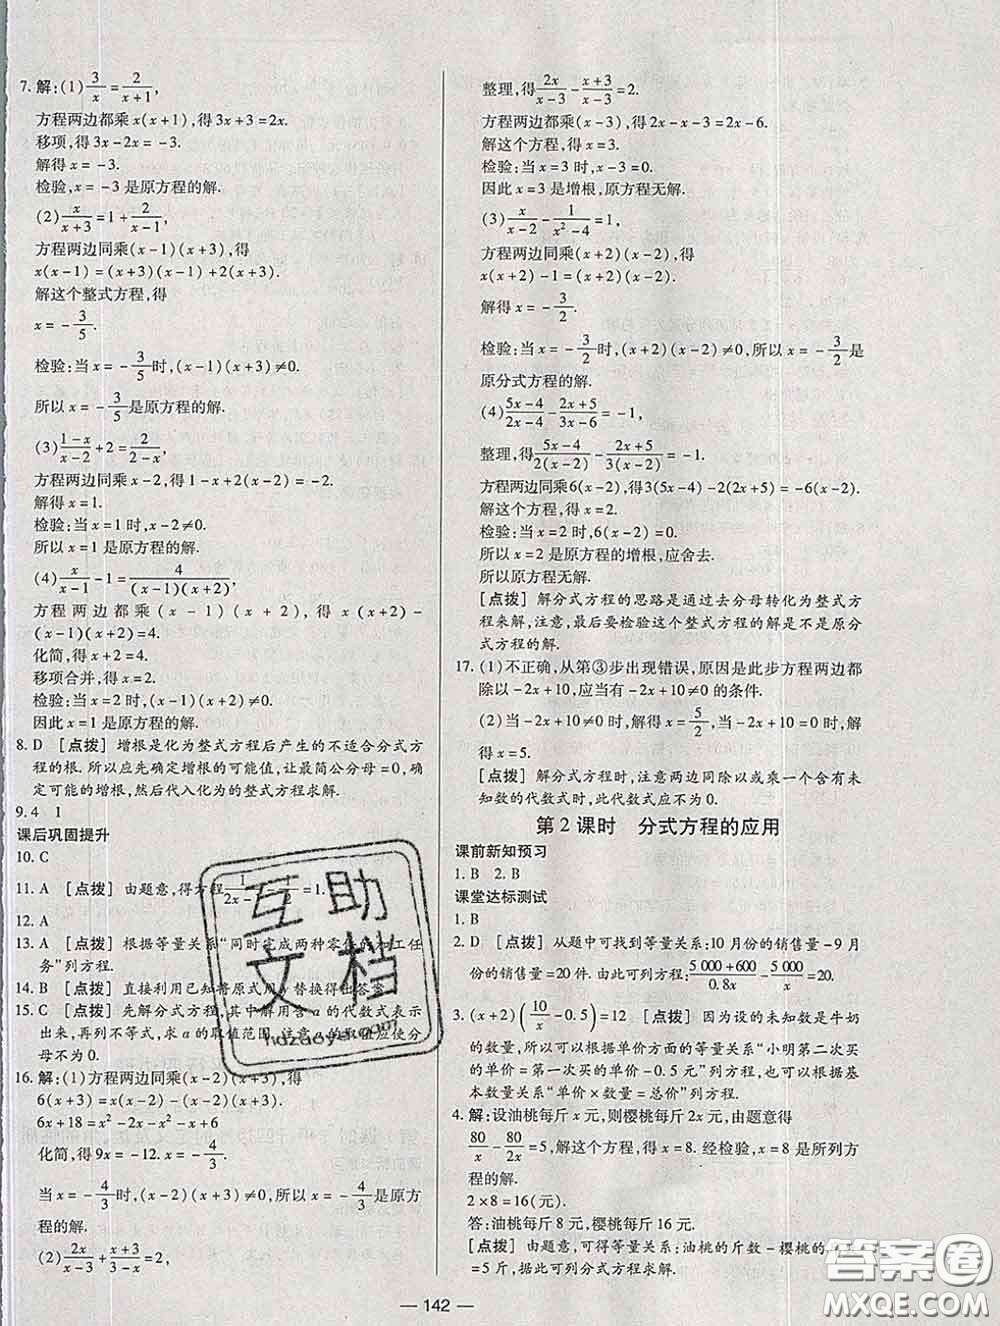 7. 解:(1) 3/x = 2/(x+1),
方程两边都乘 x(x+1),得 3x+3=2x.
移项,得 3x-2x=-3.
解得 x=-3.
检验,x=-3 是原方程的解.
(2) x/(x+3) = 1 + 2/(x-1),
方程两边同乘(x-1)(x+3),得
x(x-1)=(x+3)(x-1)+2(x+3).
解这个整式方程,得
x=-3/5.
检验:当 x=-3/5时,(x-1)(x+3)≠0.
所以 x=-3/5是原方程的解.
(3) (1-x)/(x-2) + 2 = 2/(2-x),
方程两边同乘 x-2,得 1-x+2(x-2)=-2.
解得 x=1.
检验:当 x=1 时,x-2≠0.
所以 x=1 是原方程的解.
(4) x/(x-1) - 1 = 4/((x-1)(x+2)),
方程两边都乘(x-1)(x+2),得 x(x+2)-
(x-1)(x+2)=4.
化简,得 x+2=4.
移项合并,得 x=2.
检验:当 x=2 时,(x-1)(x+2)≠0.
因此 x=1 是原方程的解.
8. D [点拨] 增根是化为整式方程后产生的不适合分式方
程的根. 所以应先确定增根的可能值,让最简公分母=0,确
定可能的增根,然后代入化为的整式方程求解.
9. 4 1
课后巩固提升
10. C
11. A [点拨] 由题意,得方程 1/(2x =1.
12. A
13. A [点拨] 根据等量关系“同时完成两种零件的加工任
务”列方程.
14. B [点拨] 直接利用已知将原式用 y 替换得出答案.
15. C [点拨] 先解分式方程,其中解用含 a 的代数式表示
出来,再列不等式,求 a 的取值范围. 注意 a 的取值应使分
母不为 0.
16. 解:(1)方程两边同乘(x-2)(x+3),得
6(x+3)=x(x-2)-(x-2)(x+3).
6x+18=x²-2x-x²-x+6.
化简,得 9x=-12. x=-4/3.
当 x=-4/3时,(x-2)(x+3)≠0,所以 x=-4/3是原方
程的解.
(2) 2x/(x-3) + (x+3)/(3-x) = 2,
整理,得 2x/(x-3) - (x+3)/(x-3) = 2.
方程两边都乘(x-3),得 2x-x-3=2x-6.
解这个方程,得 x=3.
检验:当 x=3 时,x-3=0.
因此 x=3 是增根,原方程无解.
(3) x/(x-2) - 1/(x²-4) = 1,
方程两边同乘(x+2)(x-2),得
x(x+2)-1=(x+2)(x-2).
解得 x=-3/2.
检验:当 x=-3/2时,(x+2)(x-2)≠0,所以 x=-3/2是
原分式方程的解.
(4) (5x-4)/(2x-4) - (2x+5)/(3x-6) = -1,
整理,得 (5x-4)/(2(x-2)) - (2x+5)/(3(x-2)) = -1.
方程两边同乘 6(x-2),得 3(5x-4)-2(2x+5)=-6(x-2).
解这个方程,得 x=2.
检验:当 x=2 时,6(x-2)=0.
所以 x=2 是原方程的增根,应舍去.
所以原方程无解.
[点拨] 解分式方程的思路是通过去分母转化为整式方
程来解,注意,最后要检验这个整式方程的解是不是原分
式方程的解.
17. (1)不正确,从第③步出现错误,原因是此步方程两边都
除以-2x+10,应当有-2x+10≠0 的条件.
(2)当-2x+10≠0 时,解得 x=5/2,当-2x+10=0 时,解
得 x=5.
[点拨] 解分式方程时,注意两边同除以或乘一个含有未
知数的代数式时,此代数式应不为 0.
第 2 课时 分式方程的应用
课前新知预习
1. B 2. B
课堂达标测试
1. B
2. D [点拨] 从题中可找到等量关系:10 月份的销售量-9 月
份的销售量=20 件. 由此可列方程: (5 000+600)/0.8x - 5 000/x = 20.
3. (x+2)(10/x - 0.5)=12 [点拨] 因为设的未知数是牛奶
的数量,所以可以根据单价方面的等量关系“小明第二次买
的单价=第一次买的单价-0.5 元”列方程;也可以根据基
本数量关系“单价×数量=总价”列方程.
4. 解:设油桃每斤 x 元,则樱桃每斤 2x 元,由题意得
80/x - 80/2x = 5,解这个方程,得 x=8. 经检验,x=8 是所列方
程的解.
2×8=16(元).
答:油桃每斤 8 元,樱桃每斤 16 元.
[点拨] 由题意,可得等量关系:油桃的斤数-樱桃的
=5 斤,据此可列分式方程求解.
— 142 —
互助
文档
答案卷
MXQE.COM